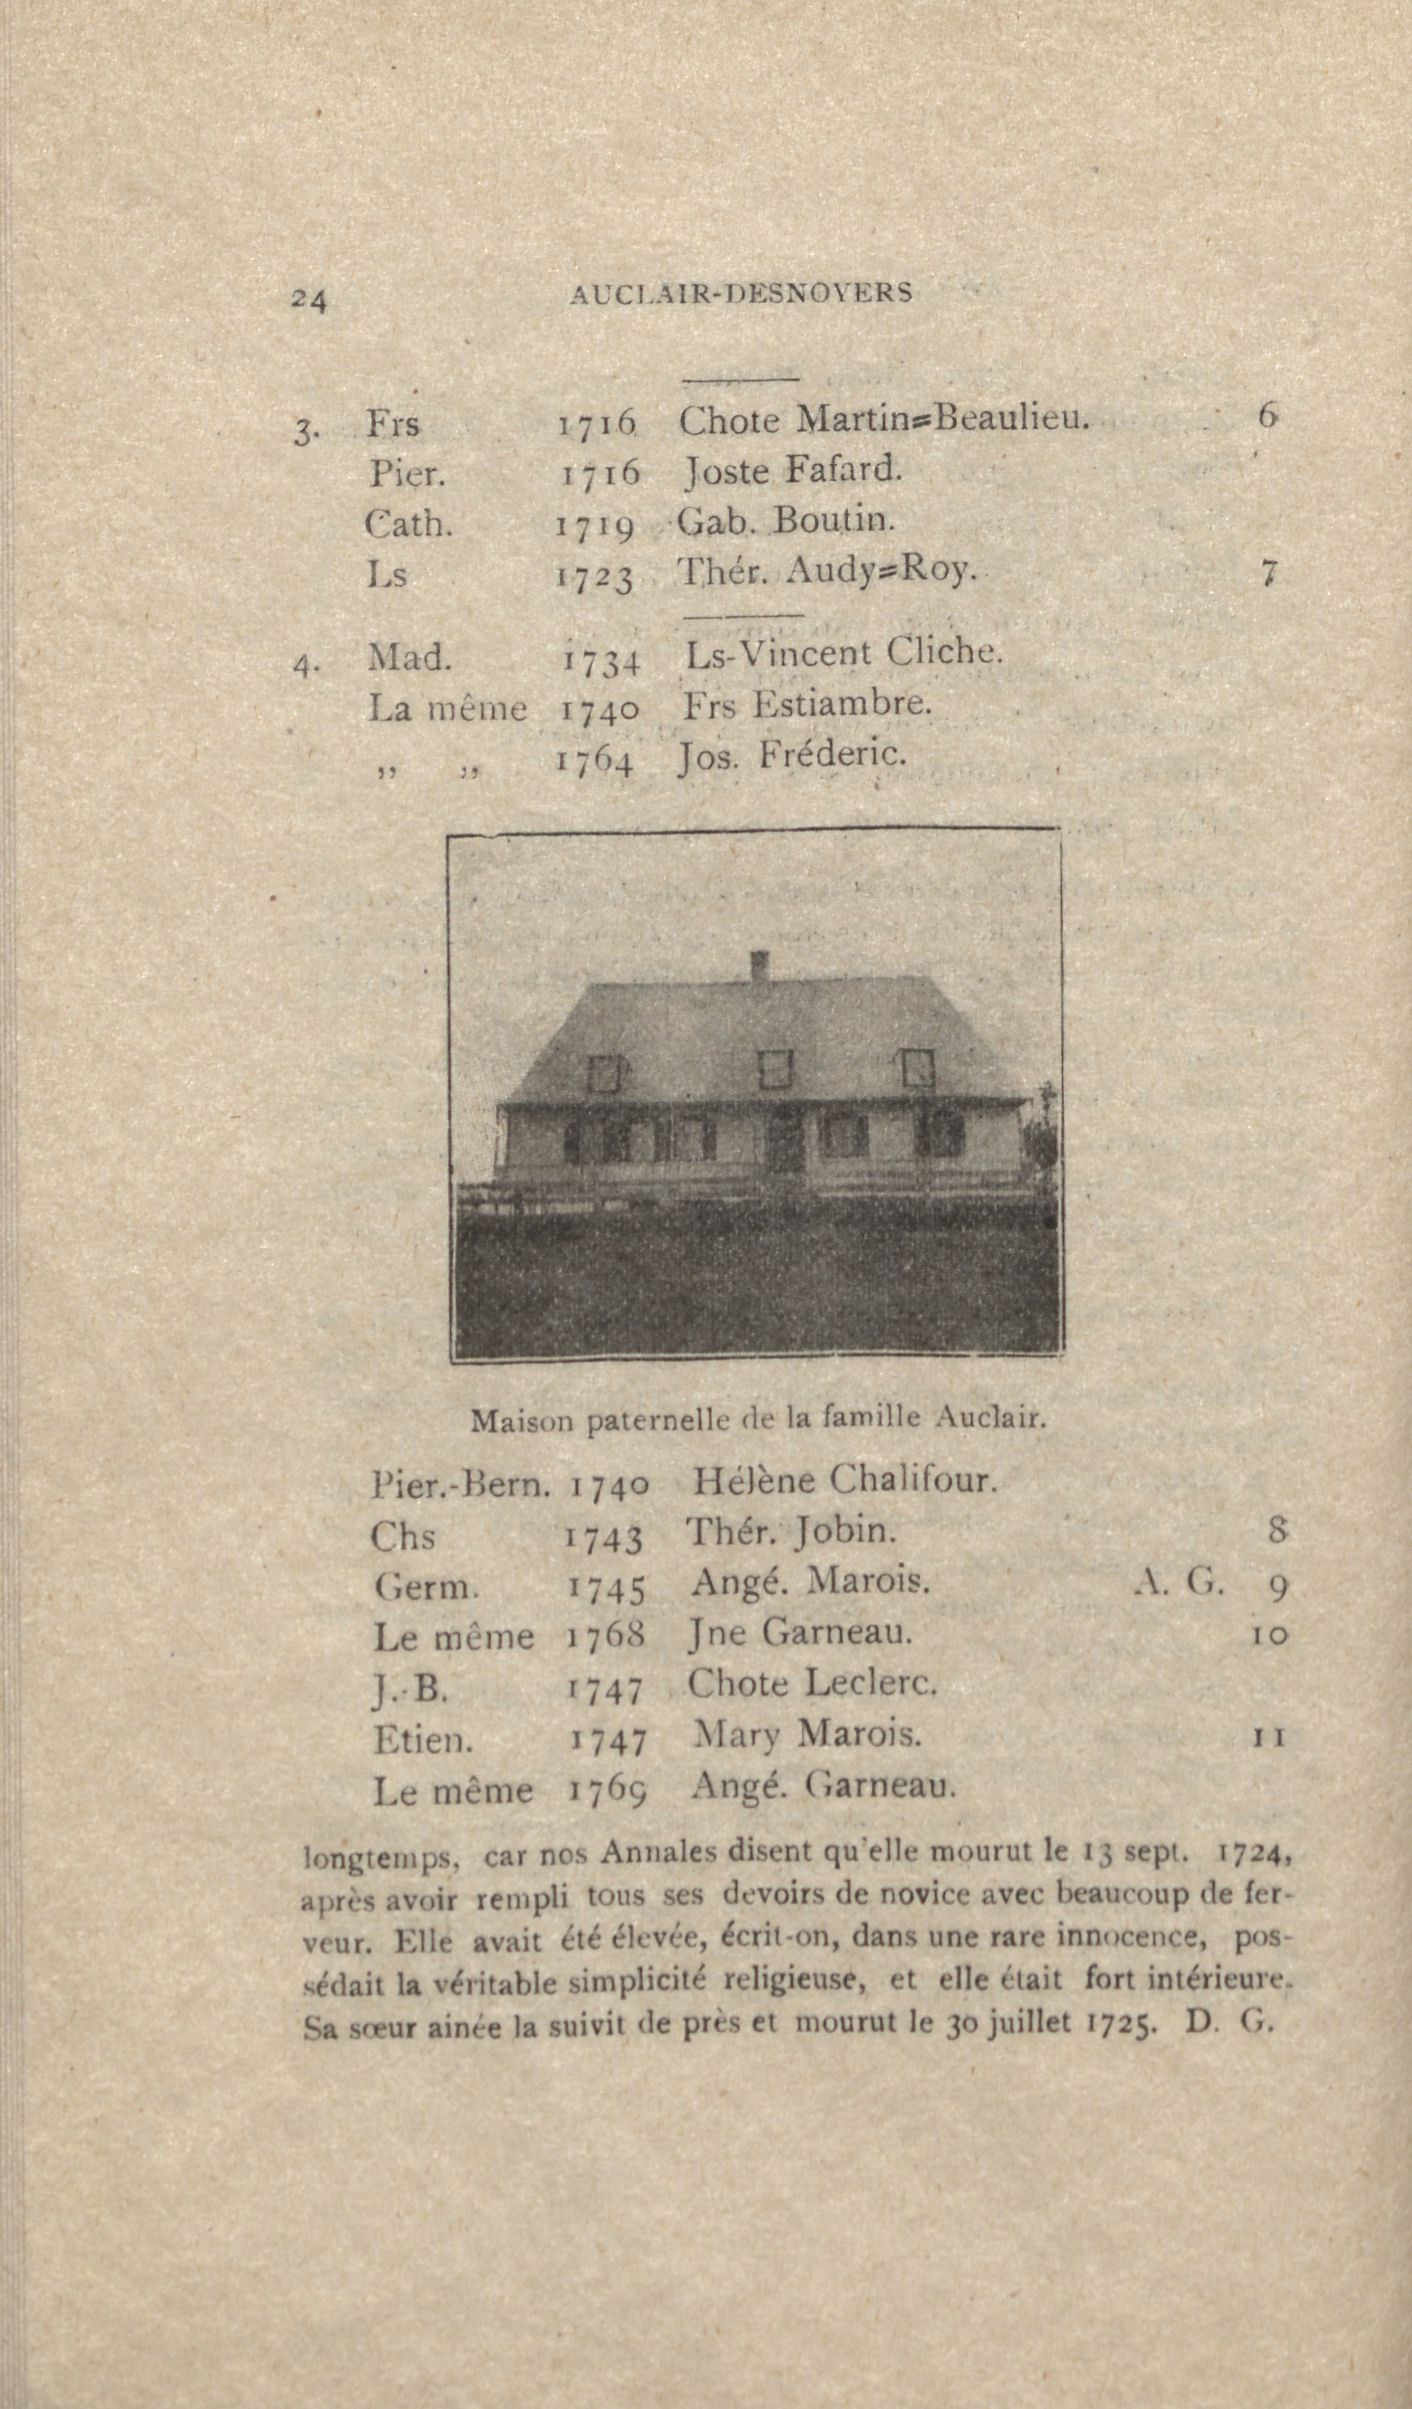 24 AUCLAIR-DESNOYERS
3. Frs 1716 Chote Martin=Beaulieu. 6
Pier. 1716 Joste Fafard.
Cath. 1719 Gab. Boutin.
Ls 1723 Thér. Audy=Roy. 7
4. Mad. 1734 Ls-Vincent Cliche.
La même 1740 Frs Estiambre.
,, ,, 1764 Jos. Fréderic.
Maison paternelle de la famille Auclair.
Pier.-Bern. 1740 Hélène Chalifour.
Chs 1743 Thér. Jobin. 8
Germ. 1745 Angé. Marois. A. G. 9
Le même 1768 Jne Garneau. 10
J.-B. 1747 Chote Leclerc.
Etien. 1747 Mary Marois. 11
Le même 1769 Angé. Garneau.
longtemps, car nos Annales disent qu'elle mourut le 13 sept. 1724,
après avoir rempli tous ses devoirs de novice avec beaucoup de fer-
veur. Elle avait été élevée, écrit-on, dans une rare innocence, pos-
sédait la véritable simplicité religieuse, et elle était fort intérieure.
Sa sœur ainée la suivit de près et mourut le 30 juillet 1725. D. G.